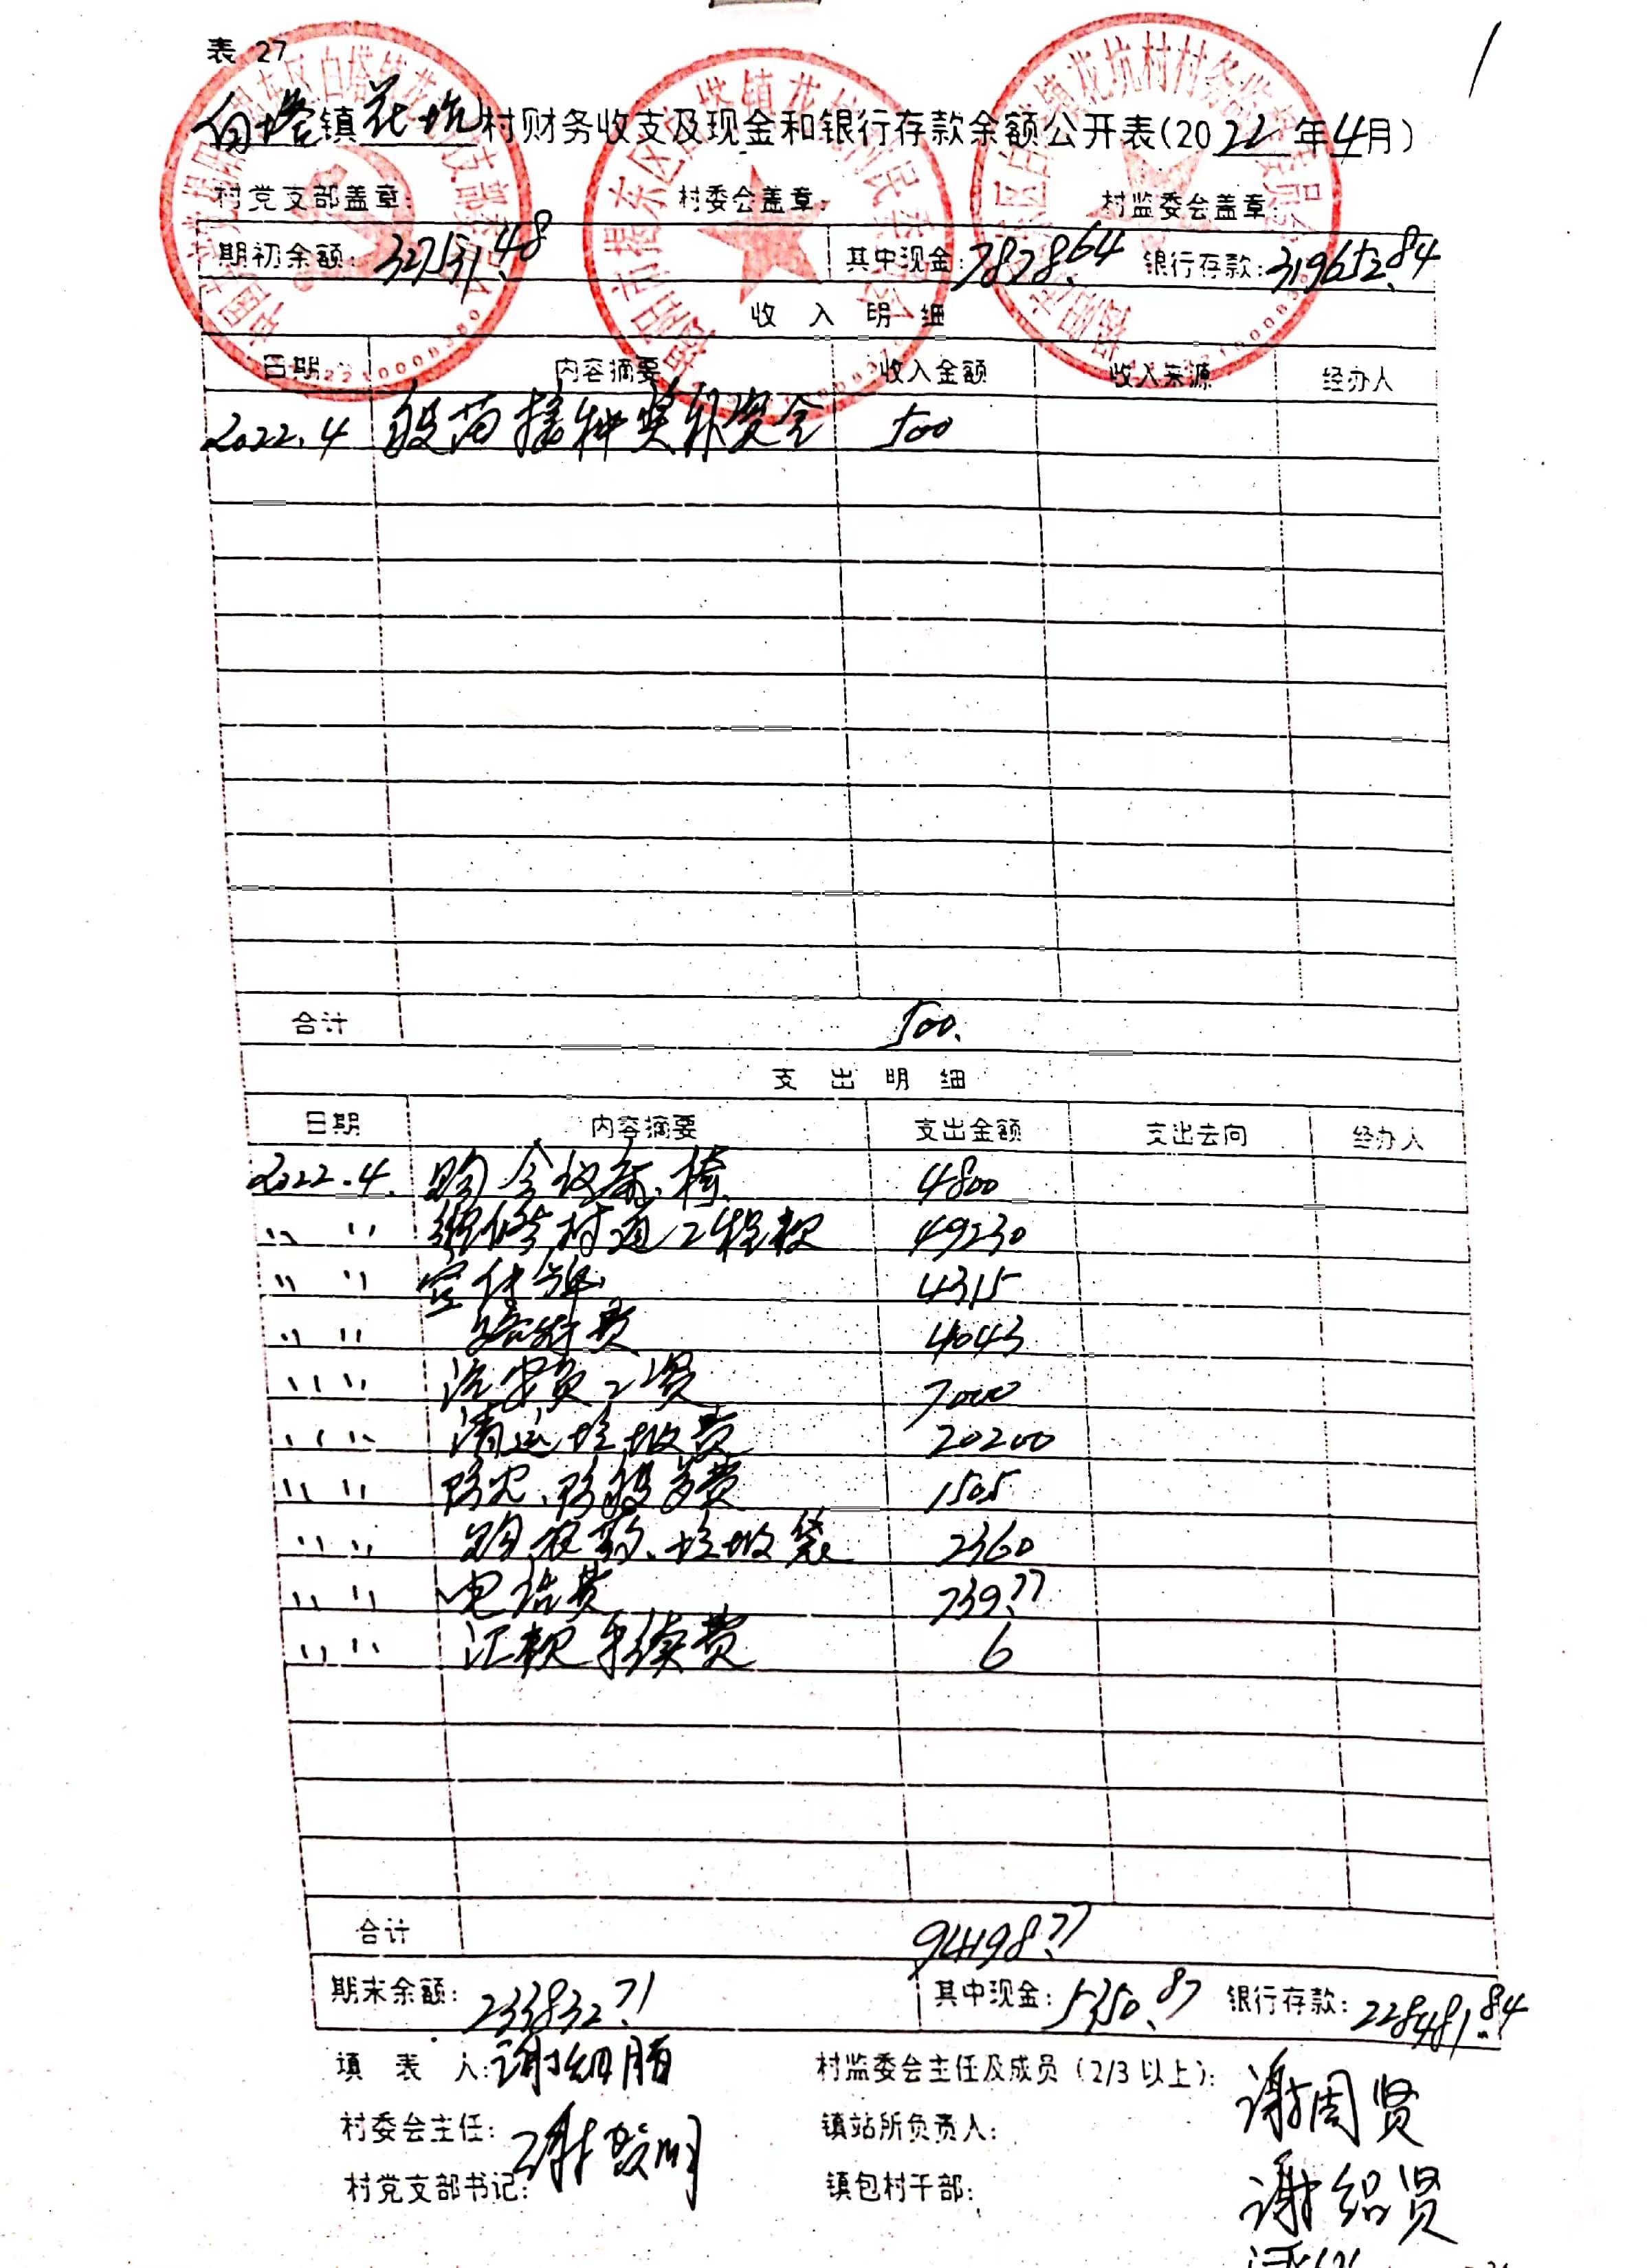 表 27
白塔镇花坑村财务收支及现金和银行存款余额公开表(2022年4月)
村党支部盖章: 村委会盖章: 村监委会盖章:
期初余额: 327531.48 其中现金: 7878.64 银行存款: 319652.84
收 入 明 细
日期 内容摘要 收入金额 收入来源 经办人
2022.4 疫苗接种奖补资金 500
合计 500.
支 出 明 细
日期 内容摘要 支出金额 支出去向 经办人
2022.4. 购会议桌、椅 4800
〃 〃 维修村道工程款 49230
〃 〃 宣传牌 4315
〃 〃 费 4043
〃 〃 保洁员工资 7000
〃 〃 清运垃圾费 20200
〃 〃 防火、防疫费 1505
〃 〃 购农药、垃圾袋 2360
〃 〃 电话费 739.77
〃 〃 汇款手续费 6
合计 94198.77
期末余额: 233832.71 其中现金: 5350.87 银行存款: 228481.84
填 表 人: 谢 村监委会主任及成员(2/3以上): 谢周贤
村委会主任: 谢 明 镇站所负责人:
村党支部书记: 镇包村干部: 谢绍贤